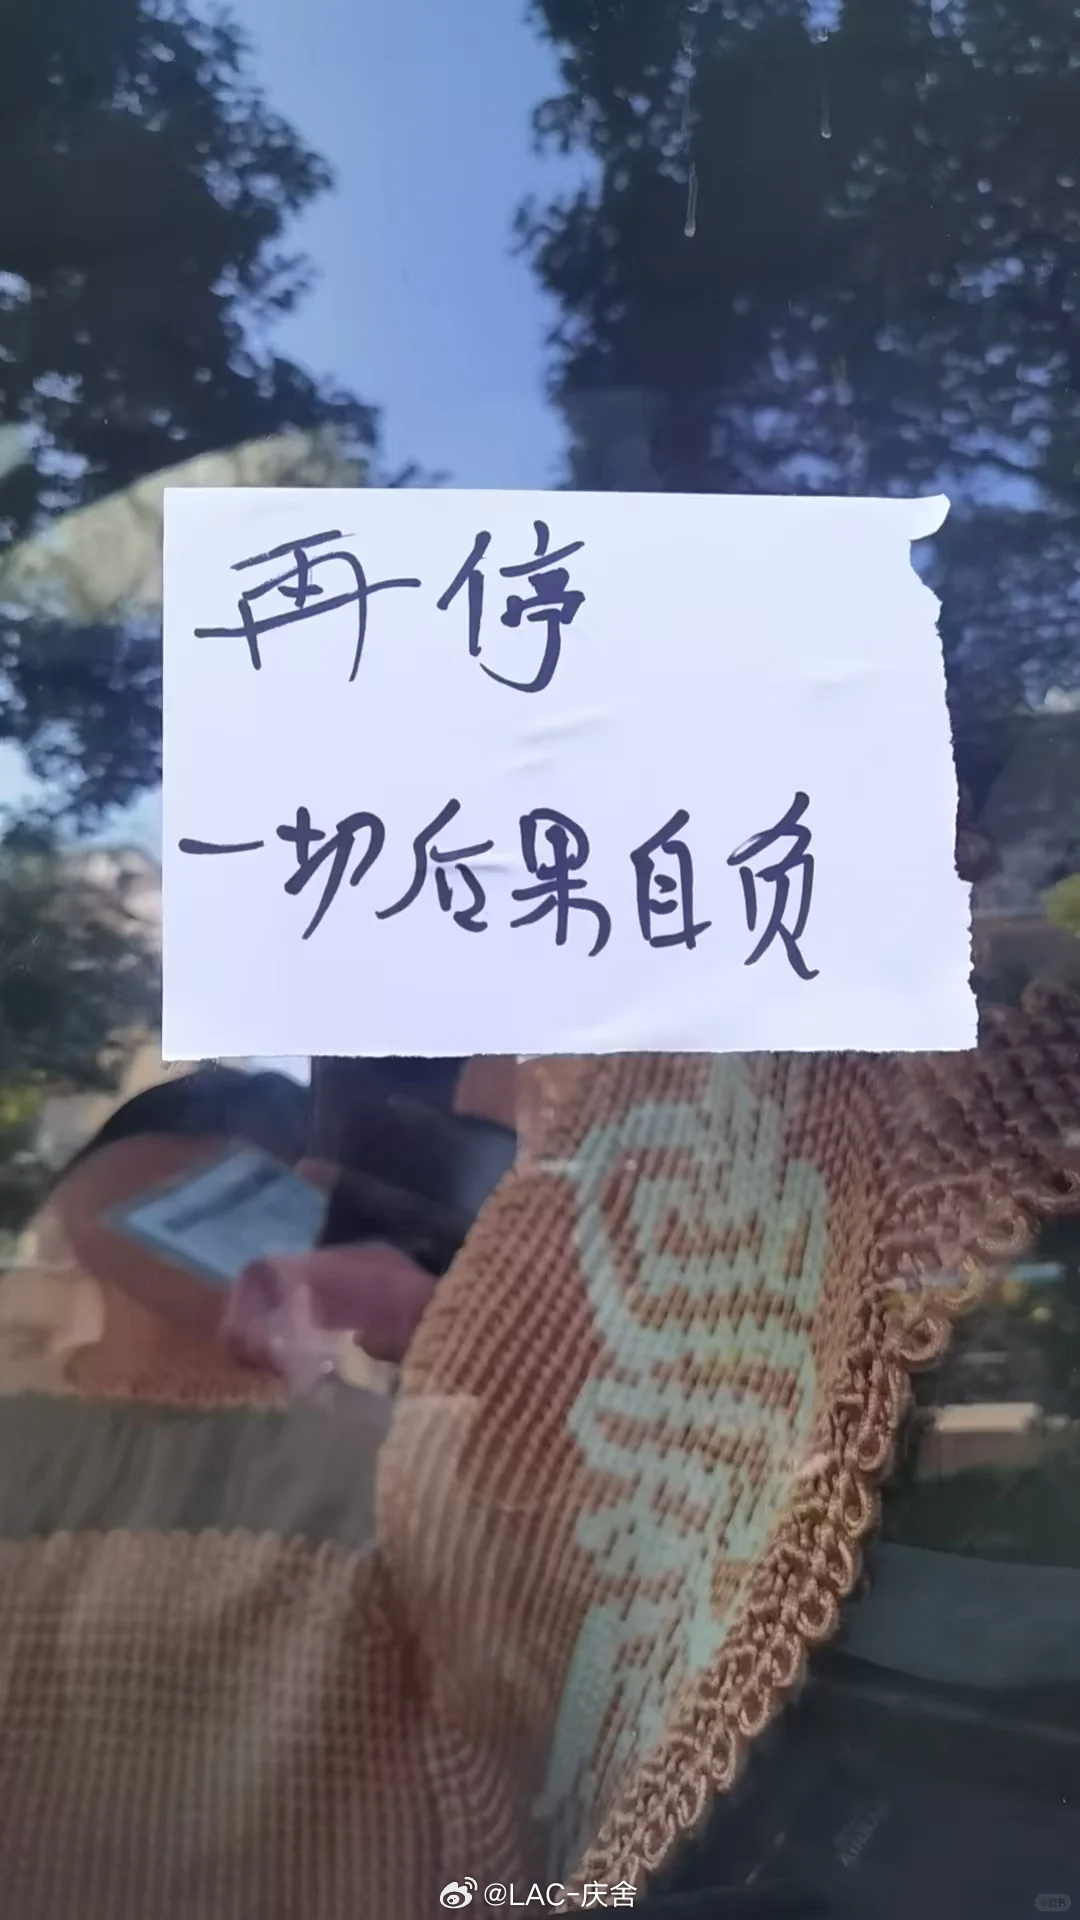 再停
一切后果自负
@LAC-庆舍
小红书